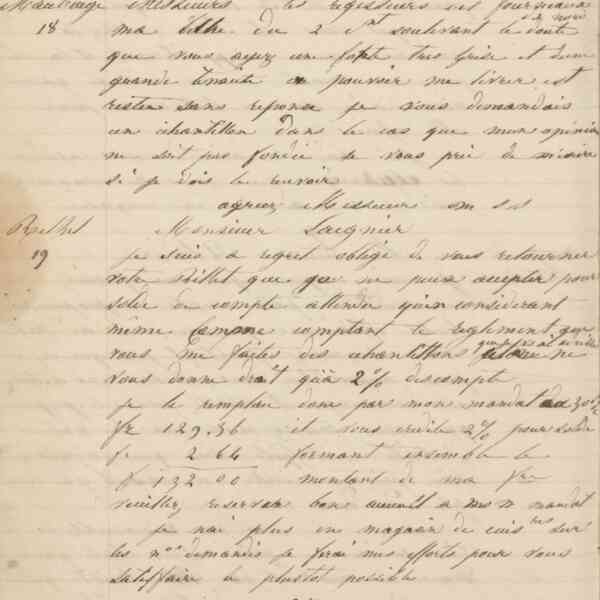 Maubeuge Messieurs les régisseurs des fourneaux
18 ma lettre du 2 Ct soulevant le doute de nouv
que vous ayez une fonte très grise et d'une
grande ténacité a pouvoir me livrer est
restée sans réponse je vous demandais
un échantillon dans le cas que mon opinion
ne soit pas fondée je vous prie de m'écrire
si je dois le recevoir
agréez Messieurs m s s
Rethel Monsieur Laignier
19 je suis a regret obligé de vous retourner
votre Billet que je ne puis accepter pour
solde de compte attendu qu'en considérant
même comme comptant le règlement que
vous me faites des échantillons ne
vous donne droit qu'à 2% d'escompte
je le remplace donc par mon mandat au 30
fr 129.36 et vous crédite 2% pour solde
f. 2 64 formant ensemble le
f 132 00 montant de ma fre
veuillez réserver bon accueil a mon mandat
je n'ai plus en magasin de cuis res sur
les nos demandés je ferai mes efforts pour vous
satisfaire le plustot possible